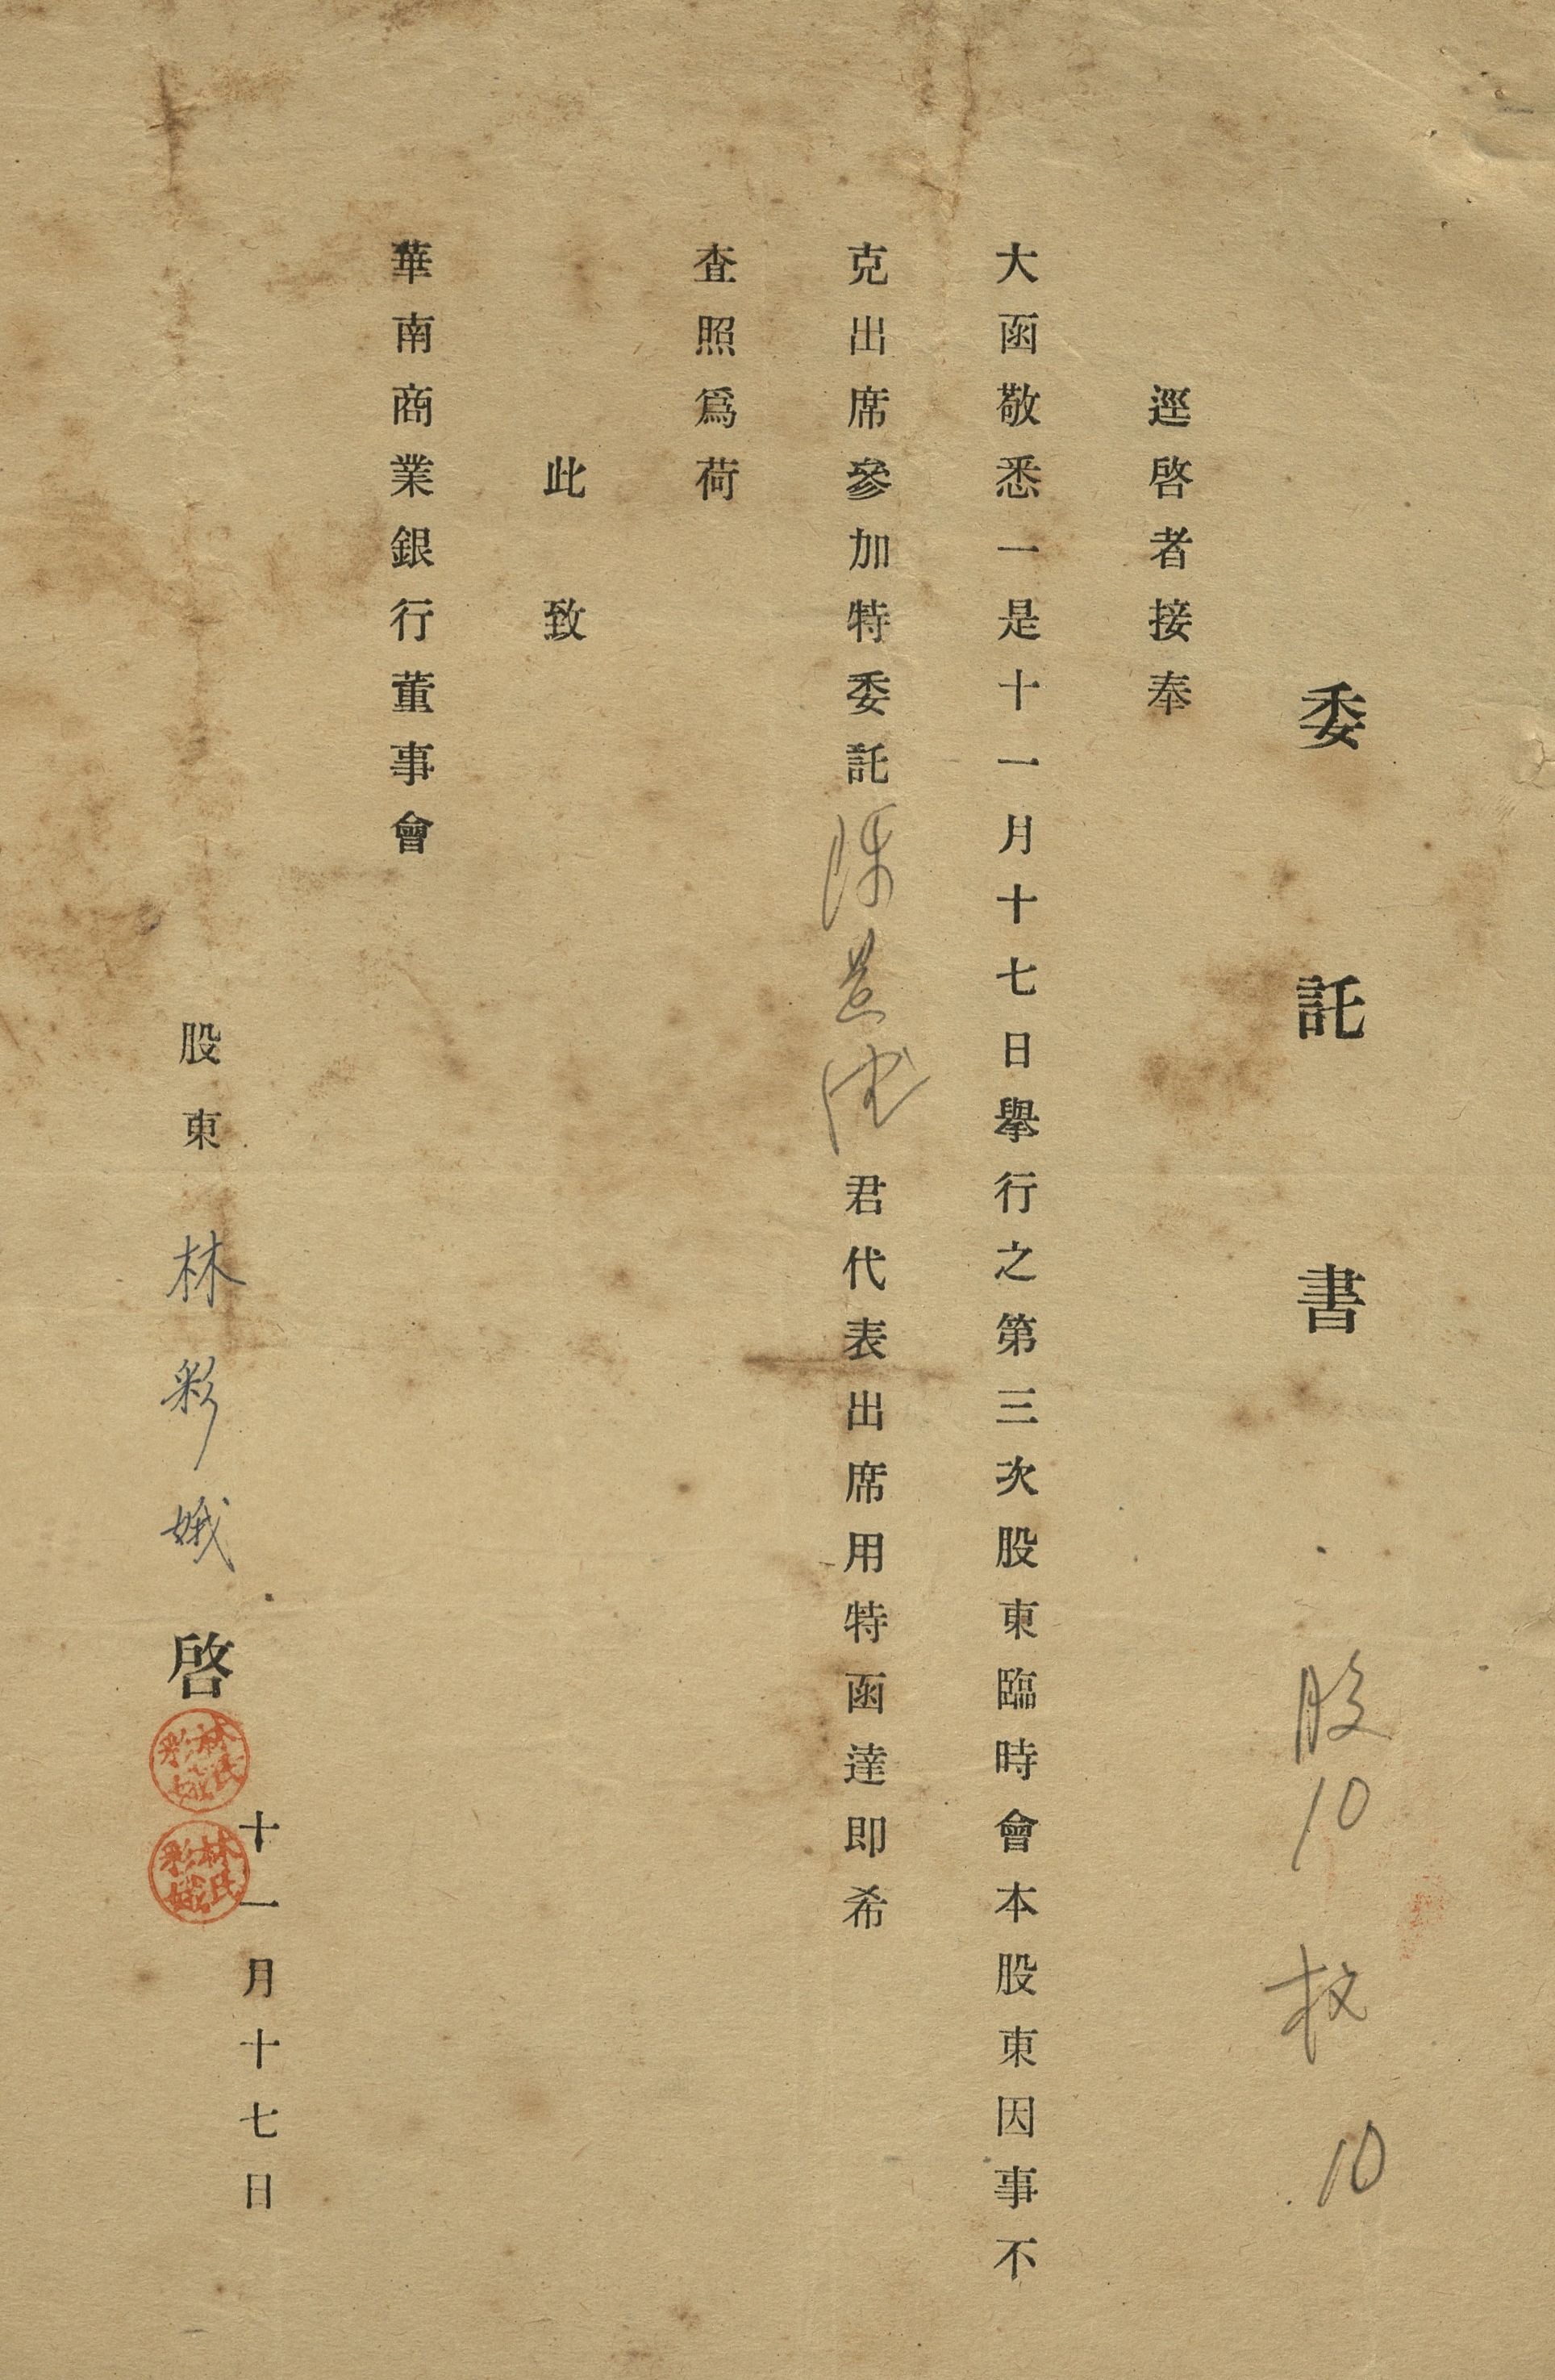 委託書 股10 权10
逕啓者接奉
大函敬悉一是十一月十七日舉行之第三次股東臨時會本股東因事不
克出席參加特委託陳君代表出席用特函達即希
查照爲荷
此致
華南商業銀行董事會
十一月十七日
股東 林彩娥 啓
林氏彩娥
林氏彩娥